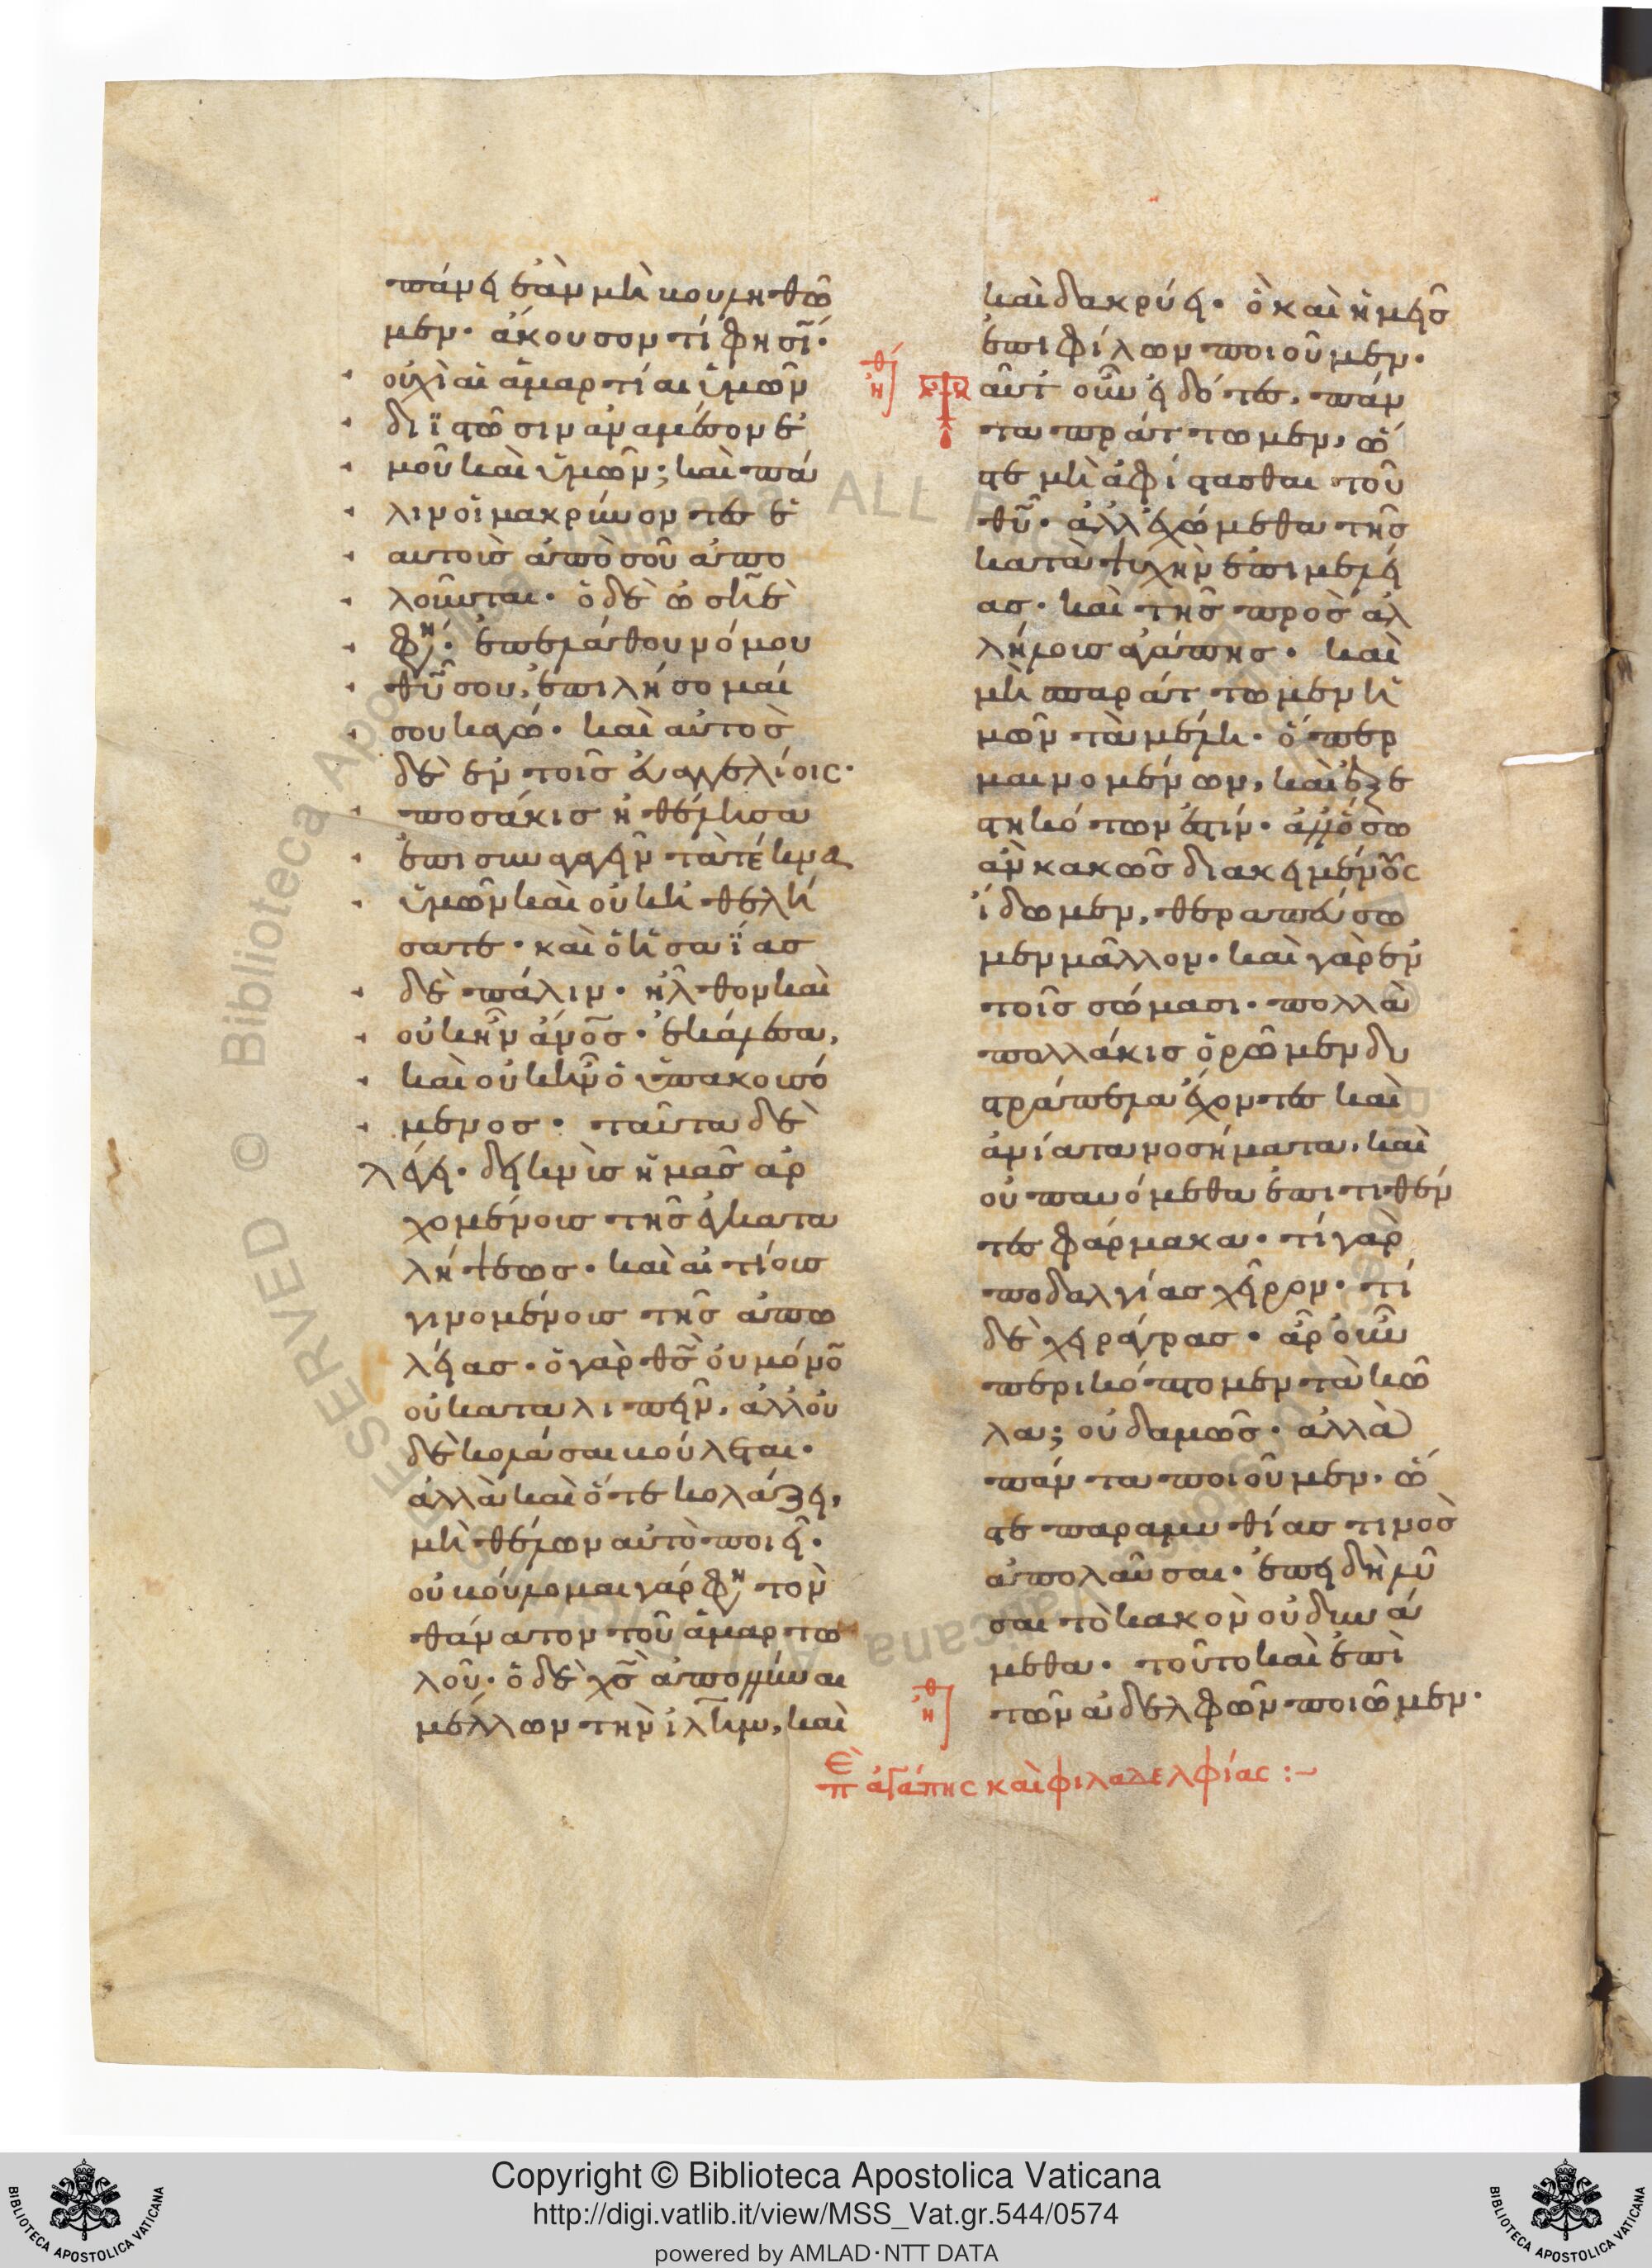 πάνει ἐὰν μὴ βουληθῶ
μεν· ἄκουσον τί φησί·
οὐχὶ αἱ ἁμαρτίαι ὑμῶν
διϊστῶσιν ἀναμέσον ἐ
μοῦ καὶ ὑμῶν; καὶ πά
λιν οἱ μακρύνοντες ἑ
αυτοὺς ἀπὸ σοῦ ἀπο
λοῦνται· ὁ δὲ ὠσηὲ
φη· ἐπελάθου νόμου
θυ σου, ἐπιλήσομαί
σου κἀγώ· καὶ αὐτὸς
δὲ ἐν τοῖς εὐαγγελίοις·
ποσάκις ἠθέλησα
ἐπισυναγαγεῖν τὰ τέκνα
ὑμῶν καὶ οὐκ ἠθελή
σατε· καὶ ὁ ἡσαΐας
δὲ πάλιν· ἦλθον καὶ
οὐκ ἦν ἀνος· ἐκάλεσα,
καὶ οὐκ ἦν ὁ ὑπακουσό
μενος· ταῦτα δὲ
λέγει· δεικνὺς ἡμᾶς ἀρ
χομένους τῆς ἐγκατα
λήψεως· καὶ αἰτίους
γινομένους τῆς ἀπω
λείας· ὁ γὰρ θς οὐ μόνο
οὐ καταλιπεῖν, ἀλλ' οὐ
δὲ κολάσαι βούλεται·
ἀλλὰ καὶ ὅτε κολάζει,
μὴ θέλων αὐτὸ ποιεῖ·
οὐ βούλομαι γάρ φη τὸν
θάνατον τοῦ ἁμαρτω
λοῦ· ὁ δὲ χς ἀπολλύναι
μέλλων τὴν ιλημ, καὶ
καὶ δακρύει· ὃ καὶ ἡμεῖς
ἐπι φίλων ποιοῦμεν·
Ταῦτ' οὖν εἰδότες, πάν
τα πράττωμεν, ὥ
στε μὴ ἀφίστασθαι τοῦ
θυ· ἀλλ' ἐχώμεθα τῆς
κατὰ ψυχὴν ἐπιμελεί
ας· καὶ τῆς πρὸς ἀλ
λήλους ἀγάπης· καὶ
μὴ σπαράττωμεν ἡ
μῶν τὰ μέλη· ὅπερ
μαινομένων, καὶ ἐξε
στηκότων ἐστίν· ἀλλ' ὅσω
ἂν κακῶς διακειμένους
ἴδωμεν, θεραπεύσω
μεν μᾶλλον· καὶ γὰρ ἐν
τοῖς σώμασι· πολλὰ
πολλάκις ὁρῶμεν δυ
στράπελα ἔχοντες καὶ
ἀνίατα νοσήματα, καὶ
οὐ παυόμεθα ἐπιτιθέν
τες φάρμακα· τί γὰρ
ποδαλγίας χεῖρον· τί
δὲ χειράγρας· ἆρ' οὖν
περικόπτομεν τὰ κῶ
λα; οὐδαμῶς· ἀλλὰ
πάντα ποιοῦμεν, ὥ
στε παραμυθίας τινὸς
ἀπολαῦσαι· ἐπειδὴ λῦ
σαι τὸ κακὸν οὐ δυνά
μεθα· τοῦτο καὶ ἐπὶ
τῶν ἀδελφῶν ποιῶμεν·
π ἀγάπης καὶ φιλαδελφίας :~
Copyright © Biblioteca Apostolica Vaticana
http://digi.vatlib.it/view/MSS_Vat.gr.544/0574
powered by AMLAD·NTT DATA